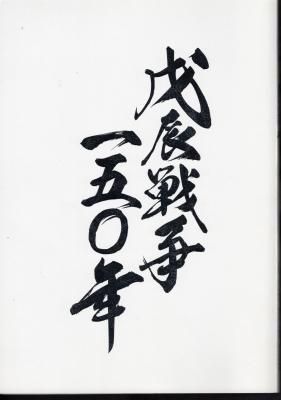 戊辰戦争
一五〇年